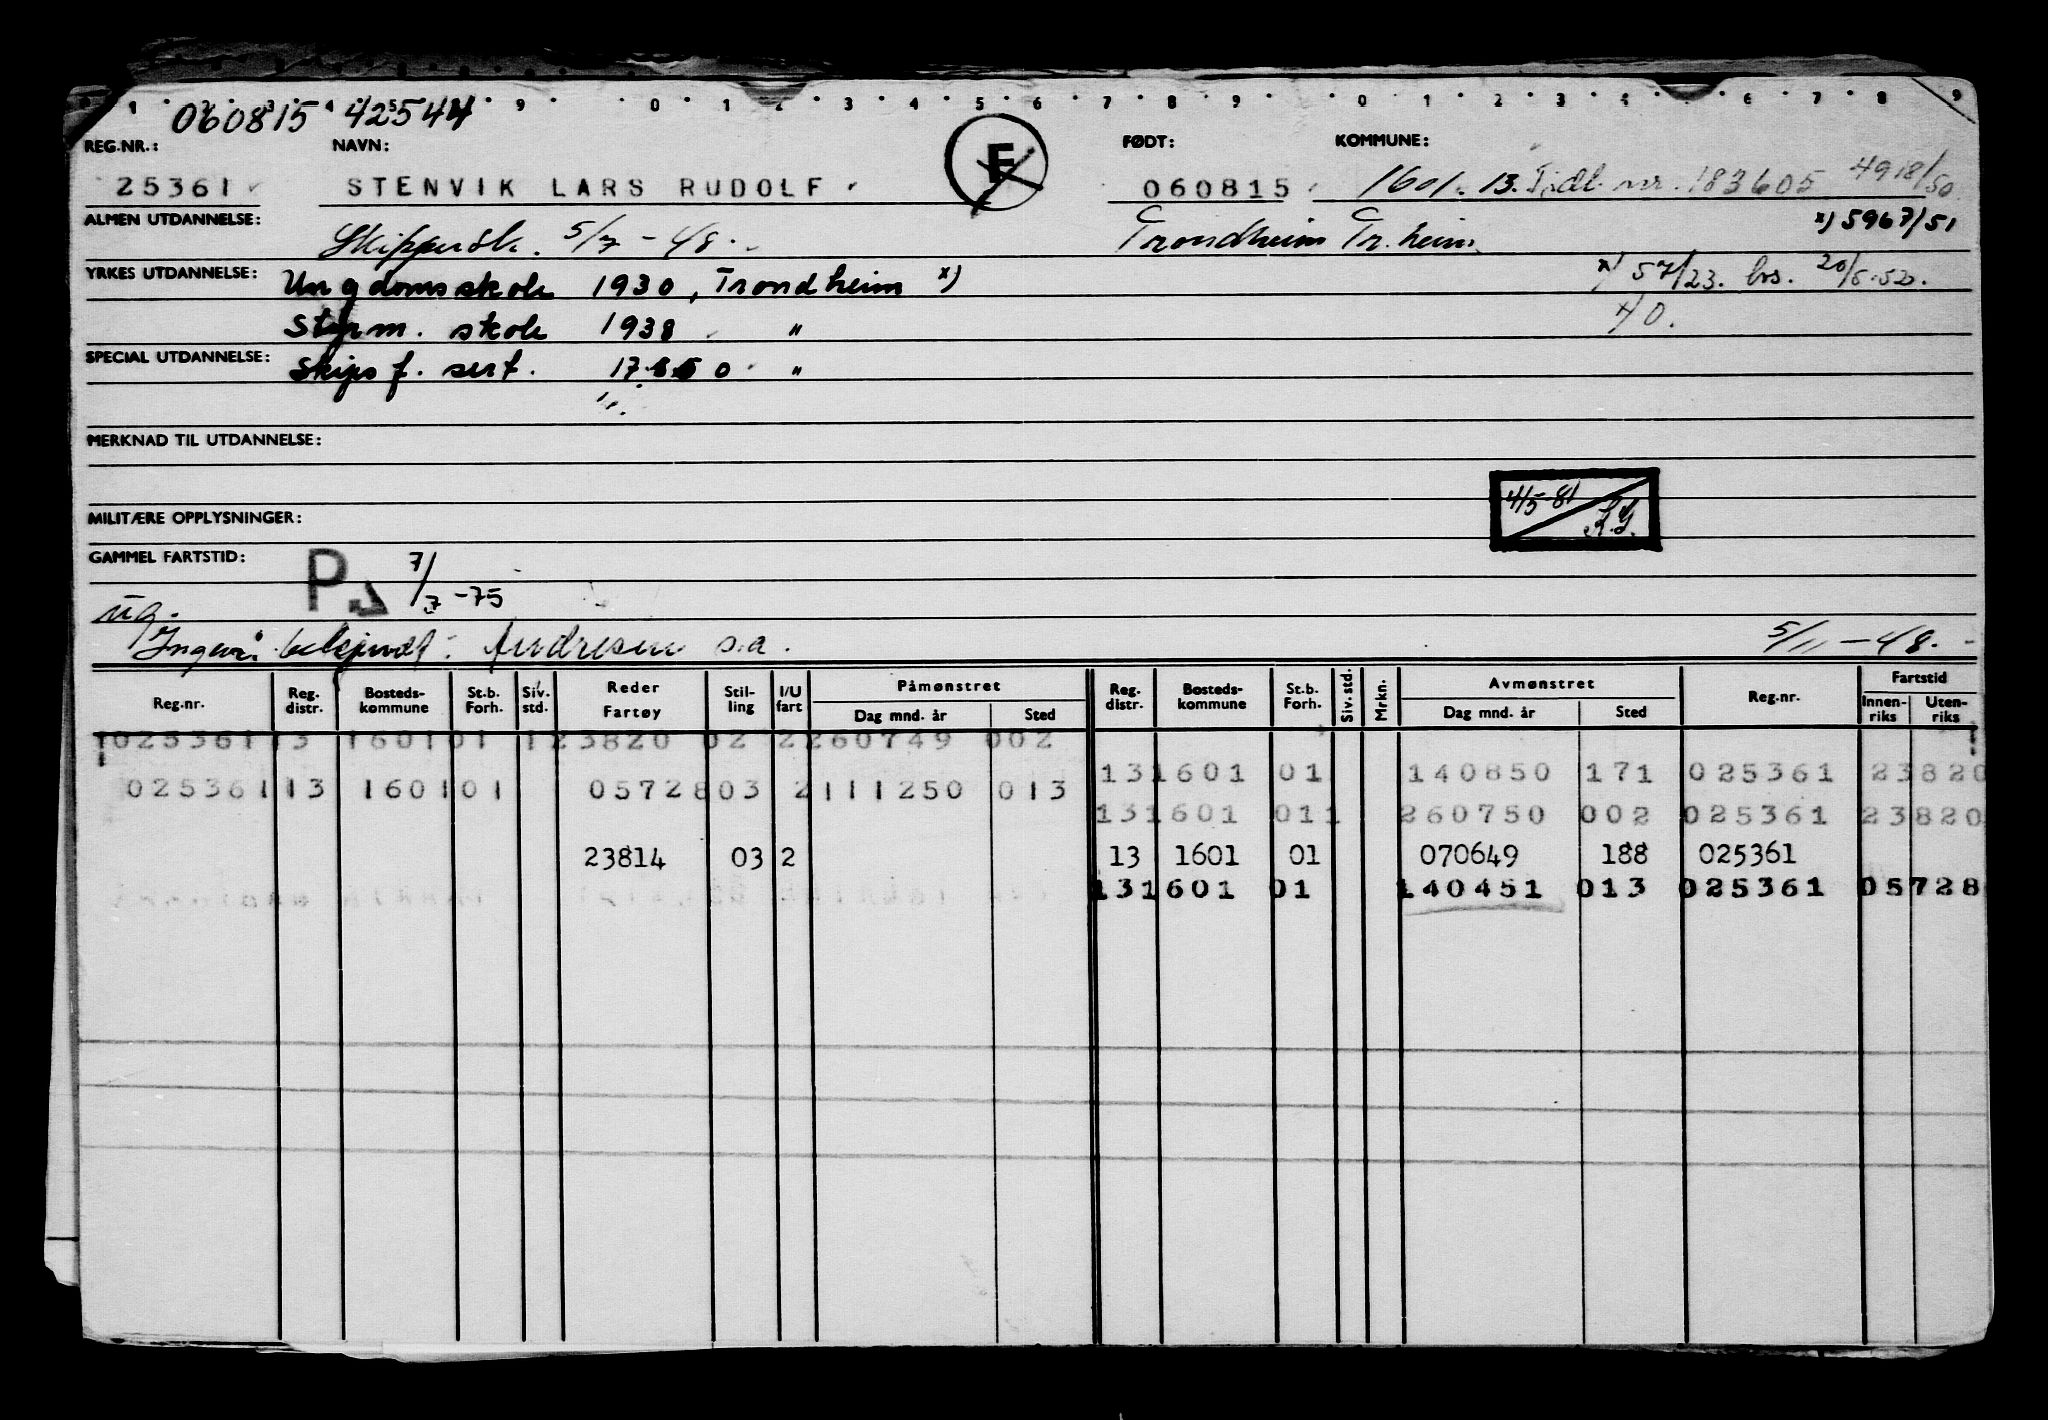 1 9 0 1 2 3 4 5 6 7 8 9 0 1 2 3 4 6 7 8 9
060815 42544
REG.NR.: NAVN: F FØDT: KOMMUNE:
25361 STENVIK LARS RUDOLF 060815 1601. 13. Tidl. nr. 183605 4918/50
ALMEN UTDANNELSE: 5/7-48. Trondheim Tr.heim x) 5967/51
YRKES UTDANNELSE: Ungdomsskole 1930, Trondheim x) x) 57/23. 20/5.52.
Styrm. skole 1938 "
SPECIAL UTDANNELSE: Skips f. sert. "
MERKNAD TIL UTDANNELSE:
4/5-81
MILITÆRE OPPLYSNINGER:
GAMMEL FARTSTID: P 7/7-75
ug.
Andresen s.a. 5/11-48.
Reg.nr. Reg. distr. Bosteds-kommune St.b. Forh. Siv. std. Reder Fartøy Stil-ling I/U fart Påmønstret Dag mnd. år Sted Reg. distr. Bosteds-kommune St.b. Forh. Siv. std. Mrkn. Avmønstret Dag mnd. år Sted Reg.nr. Fartstid Innen-riks Uten-riks
1025361 13 1601 01 1 23820 02 2 260749 002
131601 01 140850 171 025361 23820
025361 13 1601 01 05728 03 2 111250 013
131601 011 260750 002 025361 23820
23814 03 2 13 1601 01 070649 188 025361
131601 01 140451 013 025361 05728